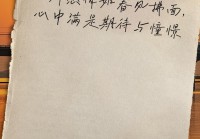 春风拂面，
心中满是期待与憧憬